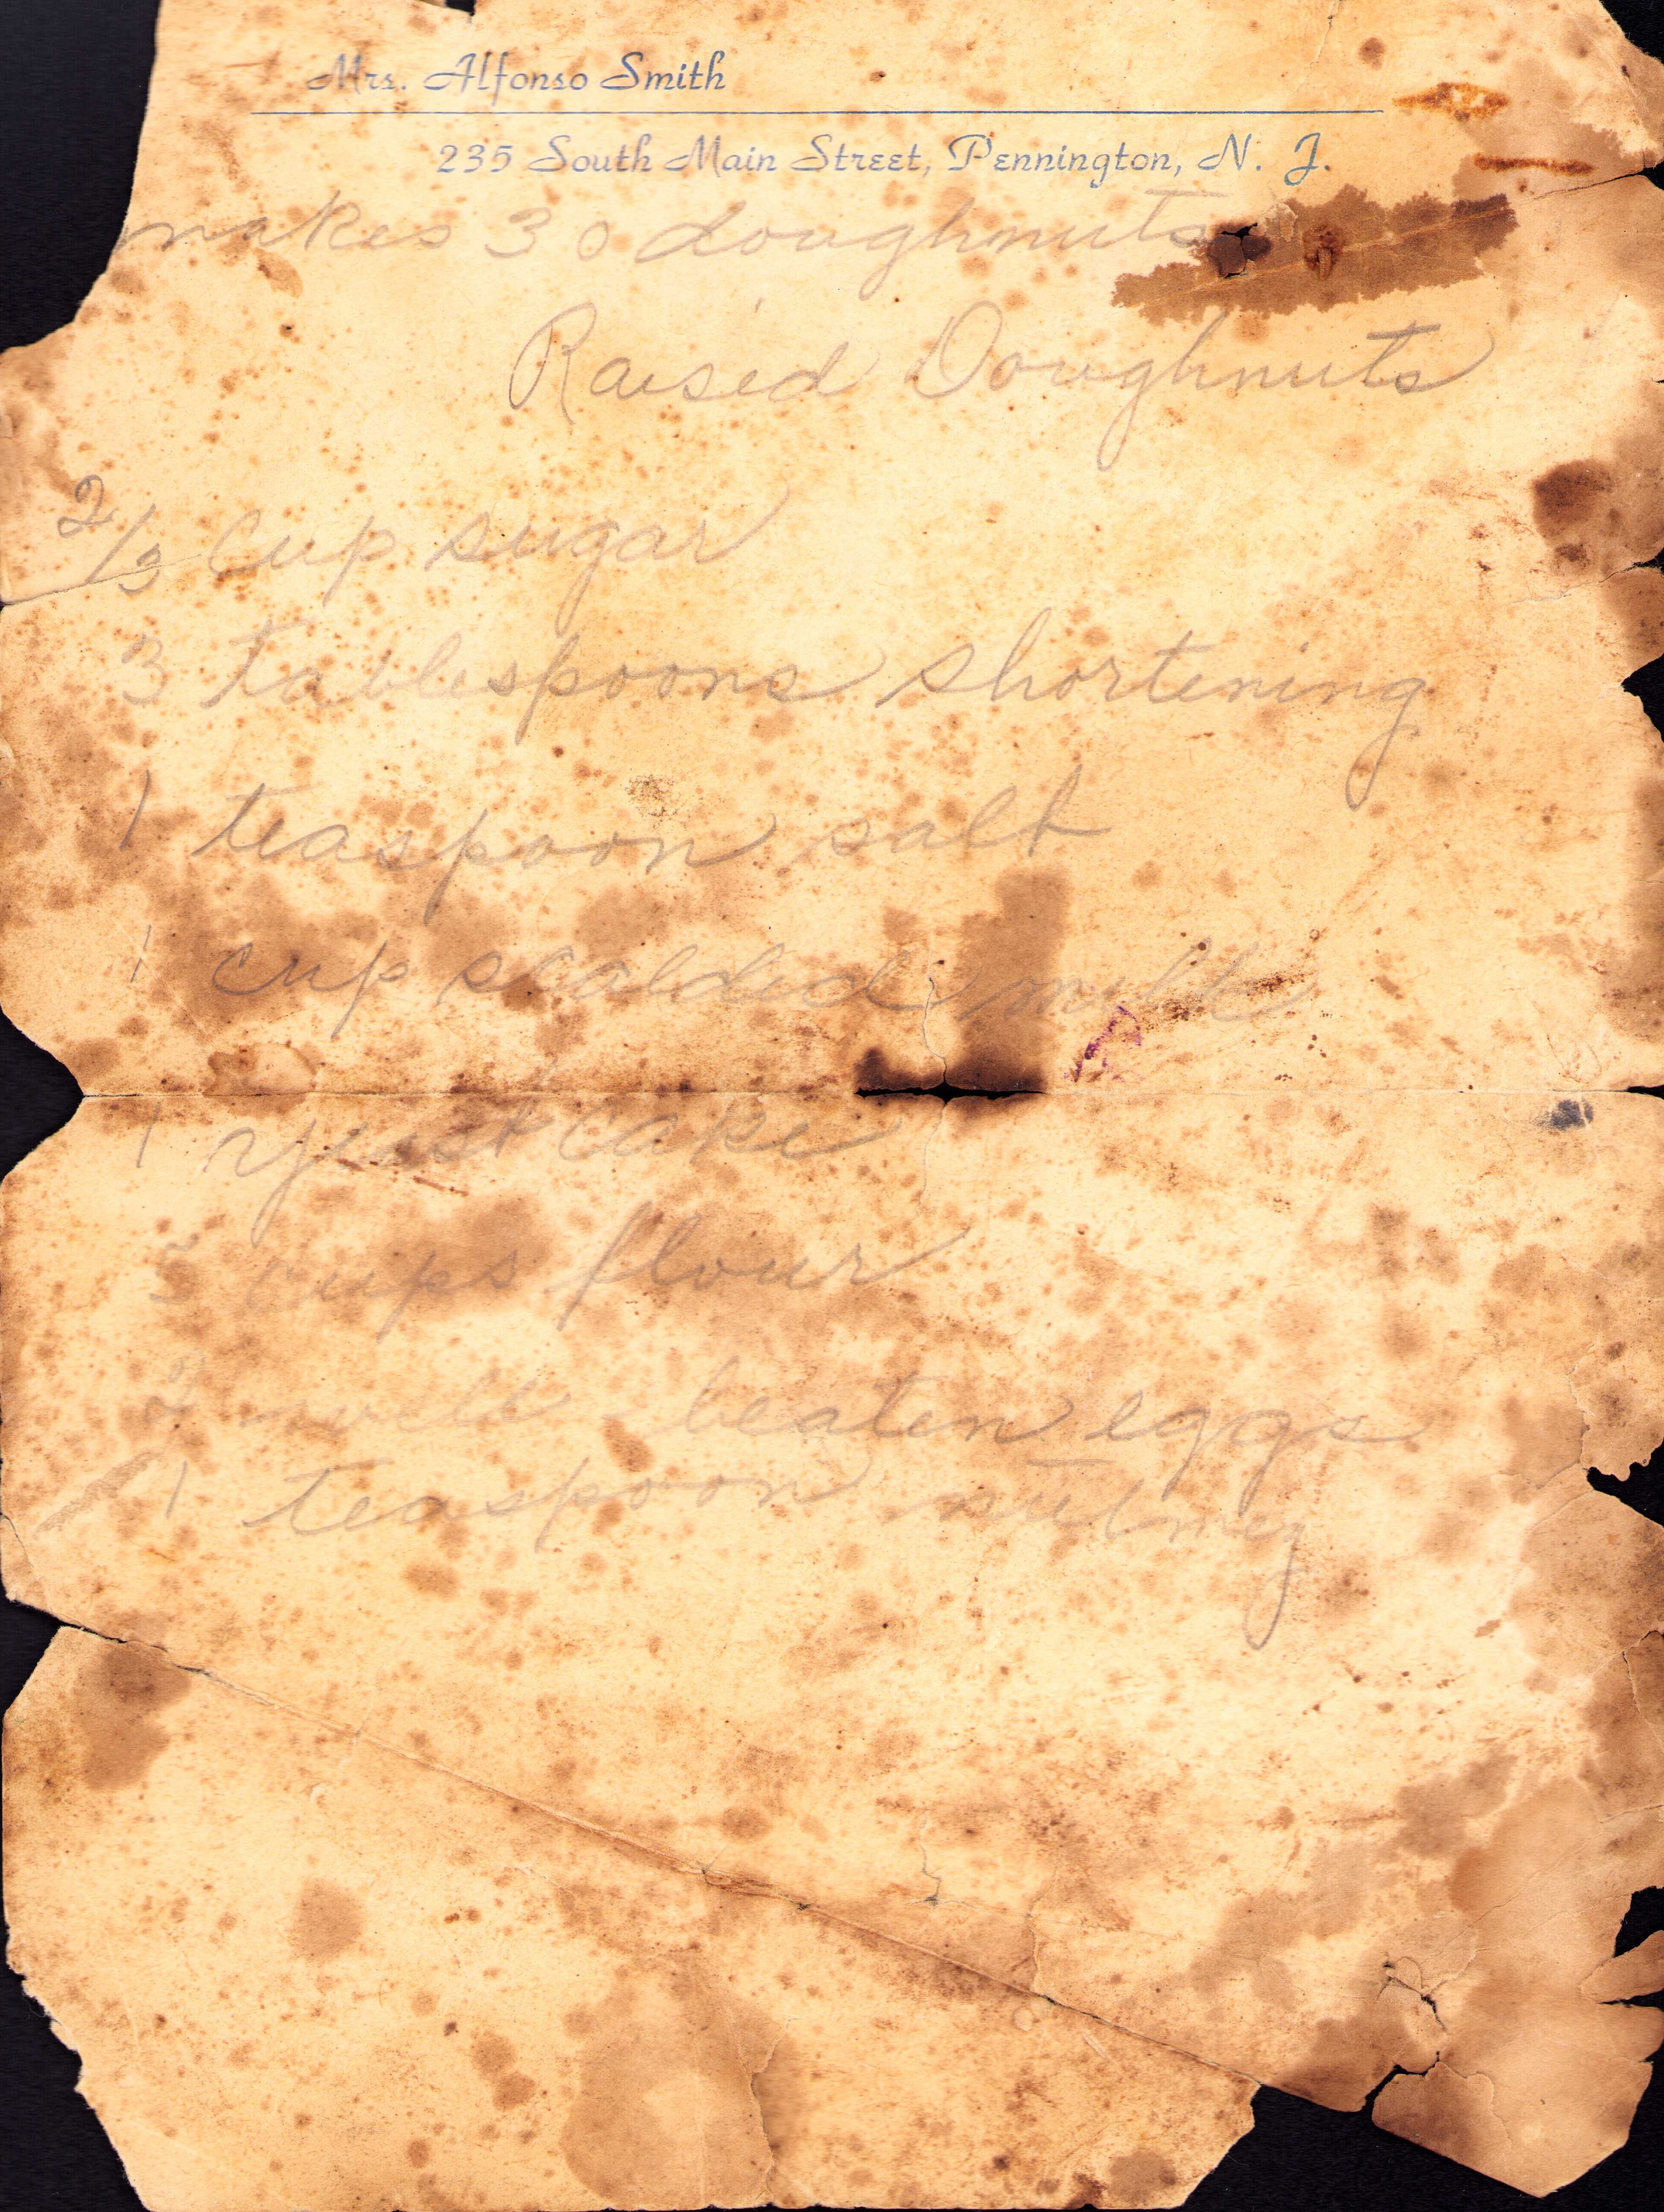 Mrs. Alfonso Smith
235 South Main Street, Pennington, N. J.
makes 30 doughnuts
Raised Doughnuts
2/3 cup sugar
3 tablespoons shortening
1 teaspoon salt
1 cup scalded milk
1 yeast cake
5 cups flour
2 well beaten eggs
1 teaspoon nutmeg